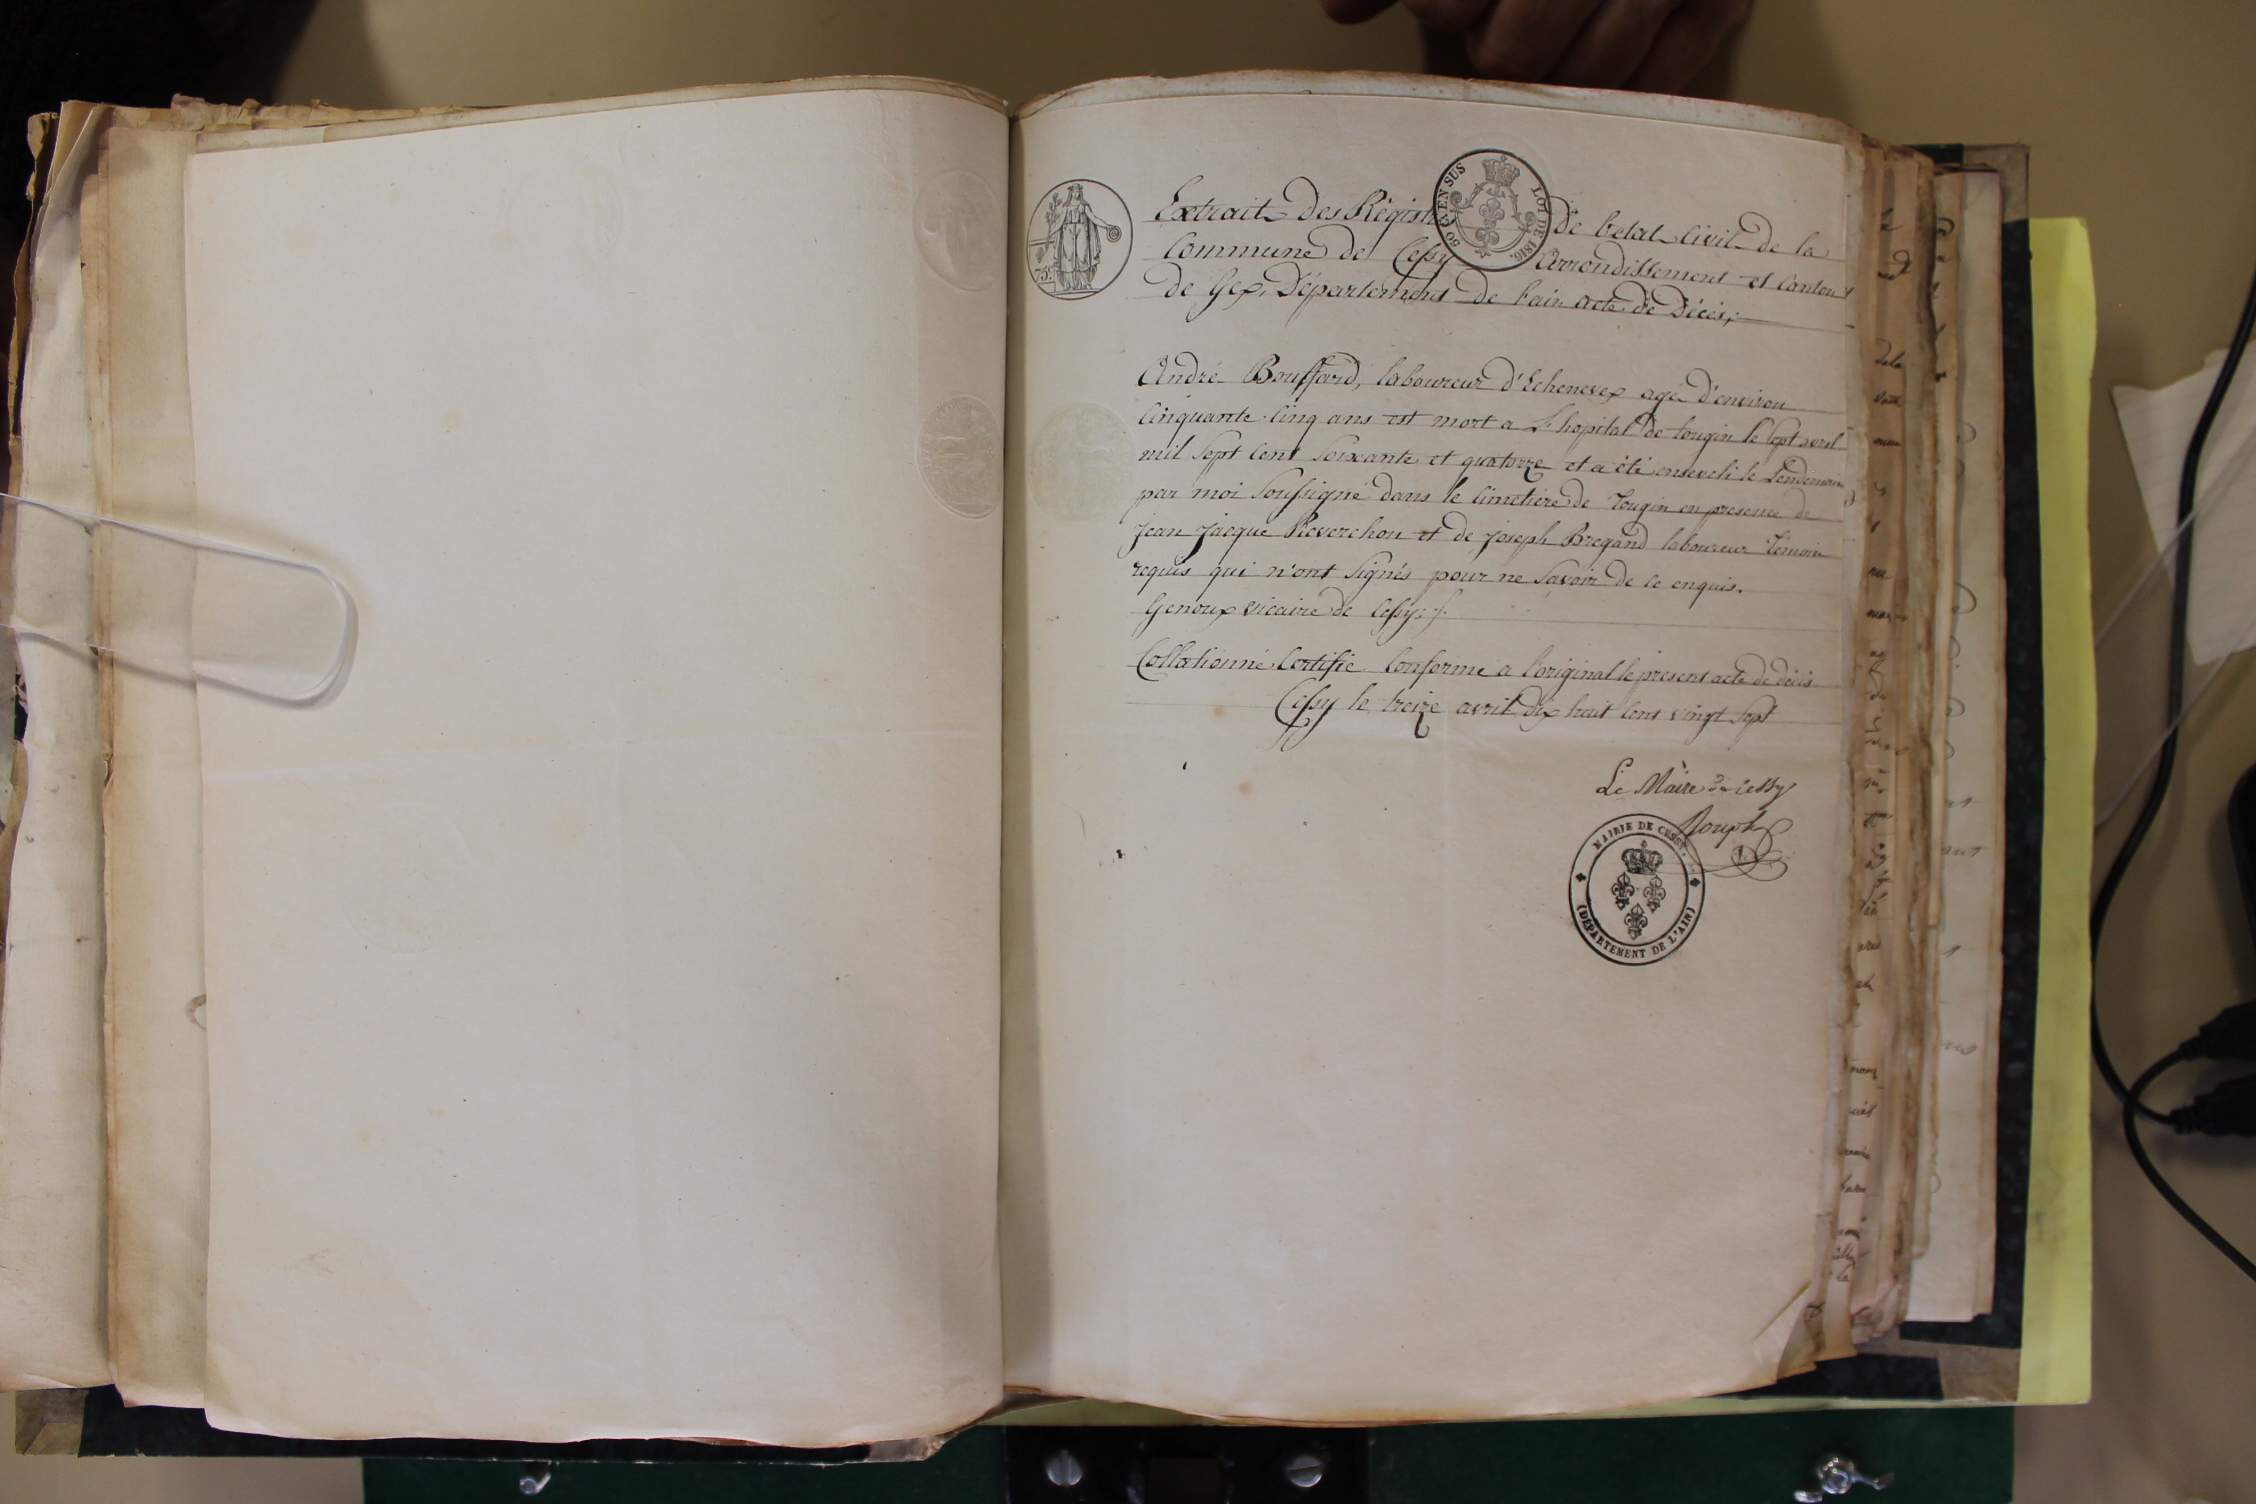 Extrait des Régist de l'etat civil de la
Commune de Cessy Arrondissement et Canton
de Gex, Département de l'ain acte de Décès,
André Bouffard, laboureur d'Echenevex agé d'environ
Cinquante Cinq ans est mort a L'hopital de tougin le sept avril
mil sept cent soixante et quatorze et a été enseveli le Lendemain
par moi soussigné dans le Cimetiere de Tougin en presence de
Jean Jacque Reverchon et de Joseph Bregand laboureur Témoin
requis qui n'ont signés pour ne savoir de ce enquis.
Genoux vicaire de Cessy
Collationné Certifié Conforme a l'original le present acte de décès
Cessy le treize avril dix huit cent vingt sept
Le Maire de Cessy
75c
50 C. EN SUS LOI DE 1816.
MAIRIE DE CESSY.
(DÉPARTEMENT DE L'AIN)